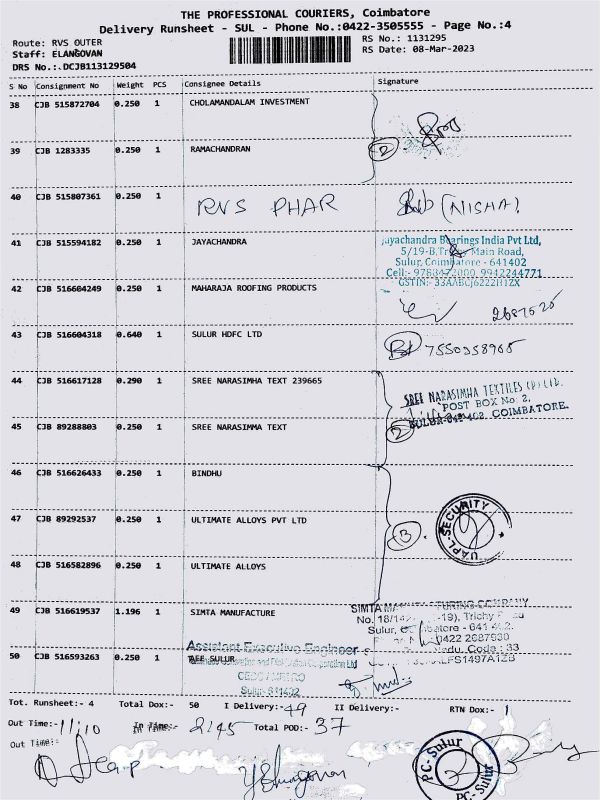 THE PROFESSIONAL COURIERS, Coimbatore
Delivery Runsheet - SUL - Phone No.:0422-3505555 - Page No.:4
Route: RVS OUTER
RS No.: 1131295
Staff: ELANGOVAN
RS Date: 08-Mar-2023
DRS No.:.DCJB113129504
S No Consignment No Weight PCS Consignee Details Signature
38 CJB 515872704 0.250 1 CHOLAMANDALAM INVESTMENT
39 CJB 1283335 0.250 1 RAMACHANDRAN 2
40 CJB 515807361 0.250 1 RVS PHAR (NISHA)
41 CJB 515594182 0.250 1 JAYACHANDRA
Jayachandra Bearings India Pvt Ltd,
5/19-B, Trichy Main Road,
Sulur, Coimbatore - 641402
Cell:- 9788472000, 9942244771
GSTIN:- 33AABCJ6222H1ZX
42 CJB 516604249 0.250 1 MAHARAJA ROOFING PRODUCTS 2687525
43 CJB 516604318 0.640 1 SULUR HDFC LTD 7550358965
44 CJB 516617128 0.290 1 SREE NARASIMHA TEXT 239665
SREE NARASIMHA TEXTILES (P) LTD.
POST BOX No: 2,
SULUR-641402, COIMBATORE.
45 CJB 89288803 0.250 1 SREE NARASIMMA TEXT 2
46 CJB 516626433 0.250 1 BINDHU
47 CJB 89292537 0.250 1 ULTIMATE ALLOYS PVT LTD 3
UAPL-SECURITY
48 CJB 516582896 0.250 1 ULTIMATE ALLOYS
49 CJB 516619537 1.196 1 SIMTA MANUFACTURE
SIMTA MANUFACTURING COMPANY
Trichy
Sulur, Coimbatore - 641 402.
0422 2687930
Code : 33
Assistant Executive Engineer
50 CJB 516593263 0.250 1 AEE SULUR
CEDC / METRO
Sulur- 641402
Tot. Runsheet:- 4 Total Dox:- 50 I Delivery:- 49 II Delivery:- RTN Dox:- 1
Out Time:- 11/10 In Time:- 2/45 Total POD:- 37
Out Time:-
PC-Sulur
PC-Sulur